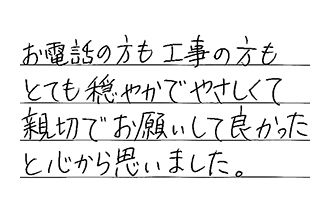 お電話の方も工事の方も
とても穏やかでやさしくて
親切でお願いして良かった
と心から思いました。